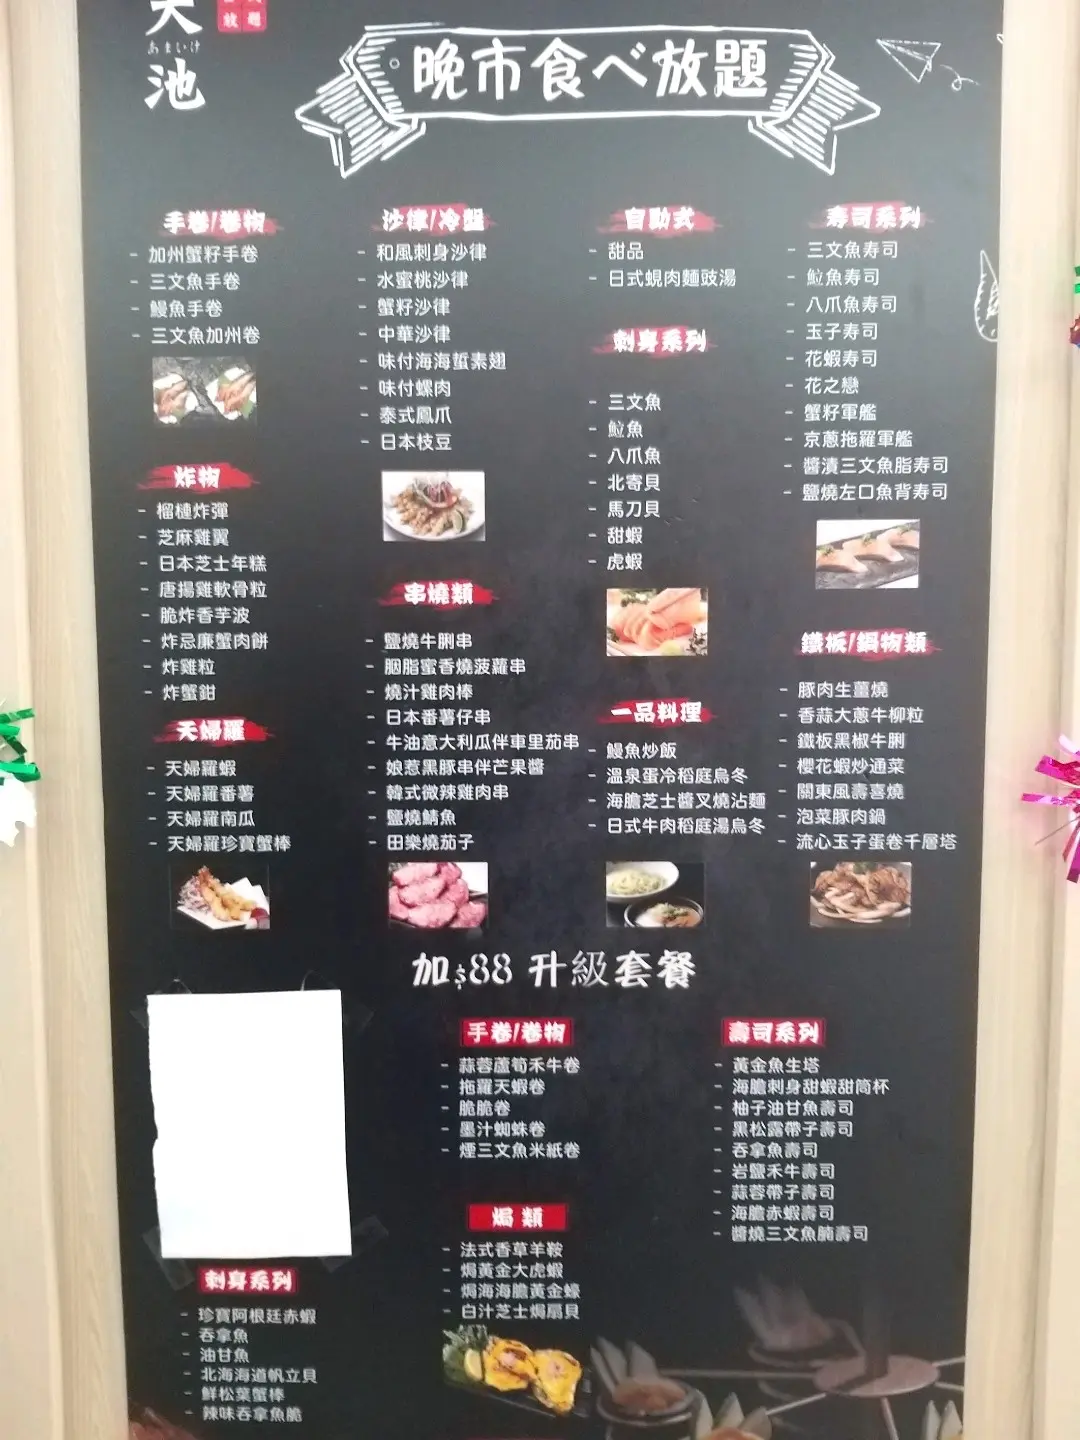 天
あまいけ
池
放題
晚市食べ放題
手卷/卷物
- 加州蟹籽手卷
- 三文魚手卷
- 鰻魚手卷
- 三文魚加州卷
炸物
- 榴槤炸彈
- 芝麻雞翼
- 日本芝士年糕
- 唐揚雞軟骨粒
- 脆炸香芋波
- 炸忌廉蟹肉餅
- 炸雞粒
- 炸蟹鉗
天婦羅
- 天婦羅蝦
- 天婦羅番薯
- 天婦羅南瓜
- 天婦羅珍寶蟹棒
沙律/冷盤
- 和風刺身沙律
- 水蜜桃沙律
- 蟹籽沙律
- 中華沙律
- 味付海海蜇素翅
- 味付螺肉
- 泰式鳳爪
- 日本枝豆
串燒類
- 鹽燒牛脷串
- 胭脂蜜香燒菠蘿串
- 燒汁雞肉棒
- 日本番薯仔串
- 牛油意大利瓜伴車里茄串
- 娘惹黑豚串伴芒果醬
- 韓式微辣雞肉串
- 鹽燒鯖魚
- 田樂燒茄子
自助式
- 甜品
- 日式蜆肉麵豉湯
刺身系列
- 三文魚
- 䱽魚
- 八爪魚
- 北寄貝
- 馬刀貝
- 甜蝦
- 虎蝦
一品料理
- 鰻魚炒飯
- 溫泉蛋冷稻庭烏冬
- 海膽芝士醬叉燒沾麵
- 日式牛肉稻庭湯烏冬
寿司系列
- 三文魚寿司
- 䱽魚寿司
- 八爪魚寿司
- 玉子寿司
- 花蝦寿司
- 花之戀
- 蟹籽軍艦
- 京蔥拖羅軍艦
- 醬漬三文魚脂寿司
- 鹽燒左口魚背寿司
鐵板/鍋物類
- 豚肉生薑燒
- 香蒜大蔥牛柳粒
- 鐵板黑椒牛脷
- 櫻花蝦炒通菜
- 關東風壽喜燒
- 泡菜豚肉鍋
- 流心玉子蛋卷千層塔
加$88 升級套餐
刺身系列
- 珍寶阿根廷赤蝦
- 吞拿魚
- 油甘魚
- 北海海道帆立貝
- 鮮松葉蟹棒
- 辣味吞拿魚脆
手卷/卷物
- 蒜蓉蘆筍禾牛卷
- 拖羅天蝦卷
- 脆脆卷
- 墨汁蜘蛛卷
- 煙三文魚米紙卷
焗類
- 法式香草羊鞍
- 焗黃金大虎蝦
- 焗海海膽黃金蠔
- 白汁芝士焗扇貝
壽司系列
- 黃金魚生塔
- 海膽刺身甜蝦甜筒杯
- 柚子油甘魚壽司
- 黑松露帶子壽司
- 吞拿魚壽司
- 岩鹽禾牛壽司
- 蒜蓉帶子壽司
- 海膽赤蝦壽司
- 醬燒三文魚腩壽司